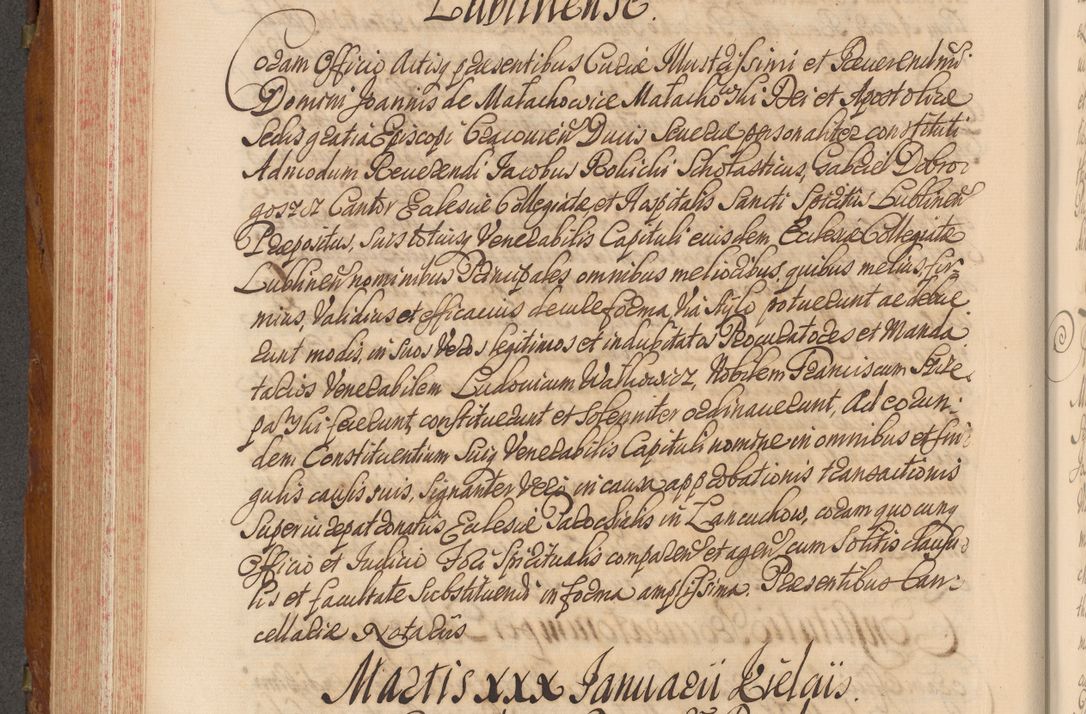 Lublinense.
Coram Officio Actisq præsentibus Curiæ Illustrissimi et Reverendmi
Domini Joannis de Małachowice Małachowski Dei et Apostolicæ
Sedis gratia Episcopi Cracovien Ducis Severiæ personaliter constituti
Admodum Reverendi Jacobus Rolichi Scholasticus, Gabriel Dobro
goszcz Cantor Eclesiæ Collegiatæ, et Hospitalis Sancti Spiritus Lublinen
Præpositus, suis totiusq Venerabilis Capituli eiusdem, Eclesiæ Collegiatæ
Lublinen nominibus Principales omnibus melioribus, quibus melius, fir
mius, Validius et efficacius de iure forma, Via stylo potuerunt ac debue
runt modis, in suos Veros legitimos et indubitatos Procuratores et Manda
tarios Venerabilem Ludovicum Walkowicz, Nobilem Franciscum
fecerunt, constituerunt et solenniter ordinaverunt, Ad eorun:
dem Constituentium suiq Venerabilis Capituli nomine in omnibus et sin
gulis causis suis, signanter Vero in causa approbationis transactionis
super iurepatronatus Eclesiæ Parochialis in Lancuchow, coram quocunq
Officio et Judicio Fori Spiritualis comparen et agen cum solitis clausu
lis et facultate substituendi in forma amplissima. Præsentibus Can:
cellariæ Notariis
Martis XXX Januarii Kielciis.